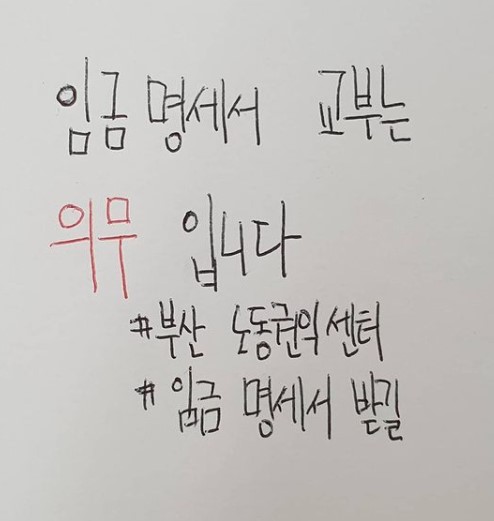 임금 명세서 교부는
의무 입니다
#부산 노동권익센터
#임금 명세서 받길